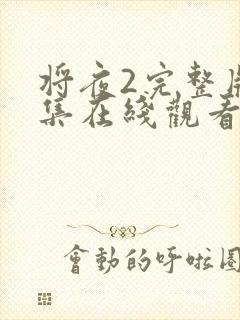 将夜2完整
集在綫觀看
會動的呼啦圈